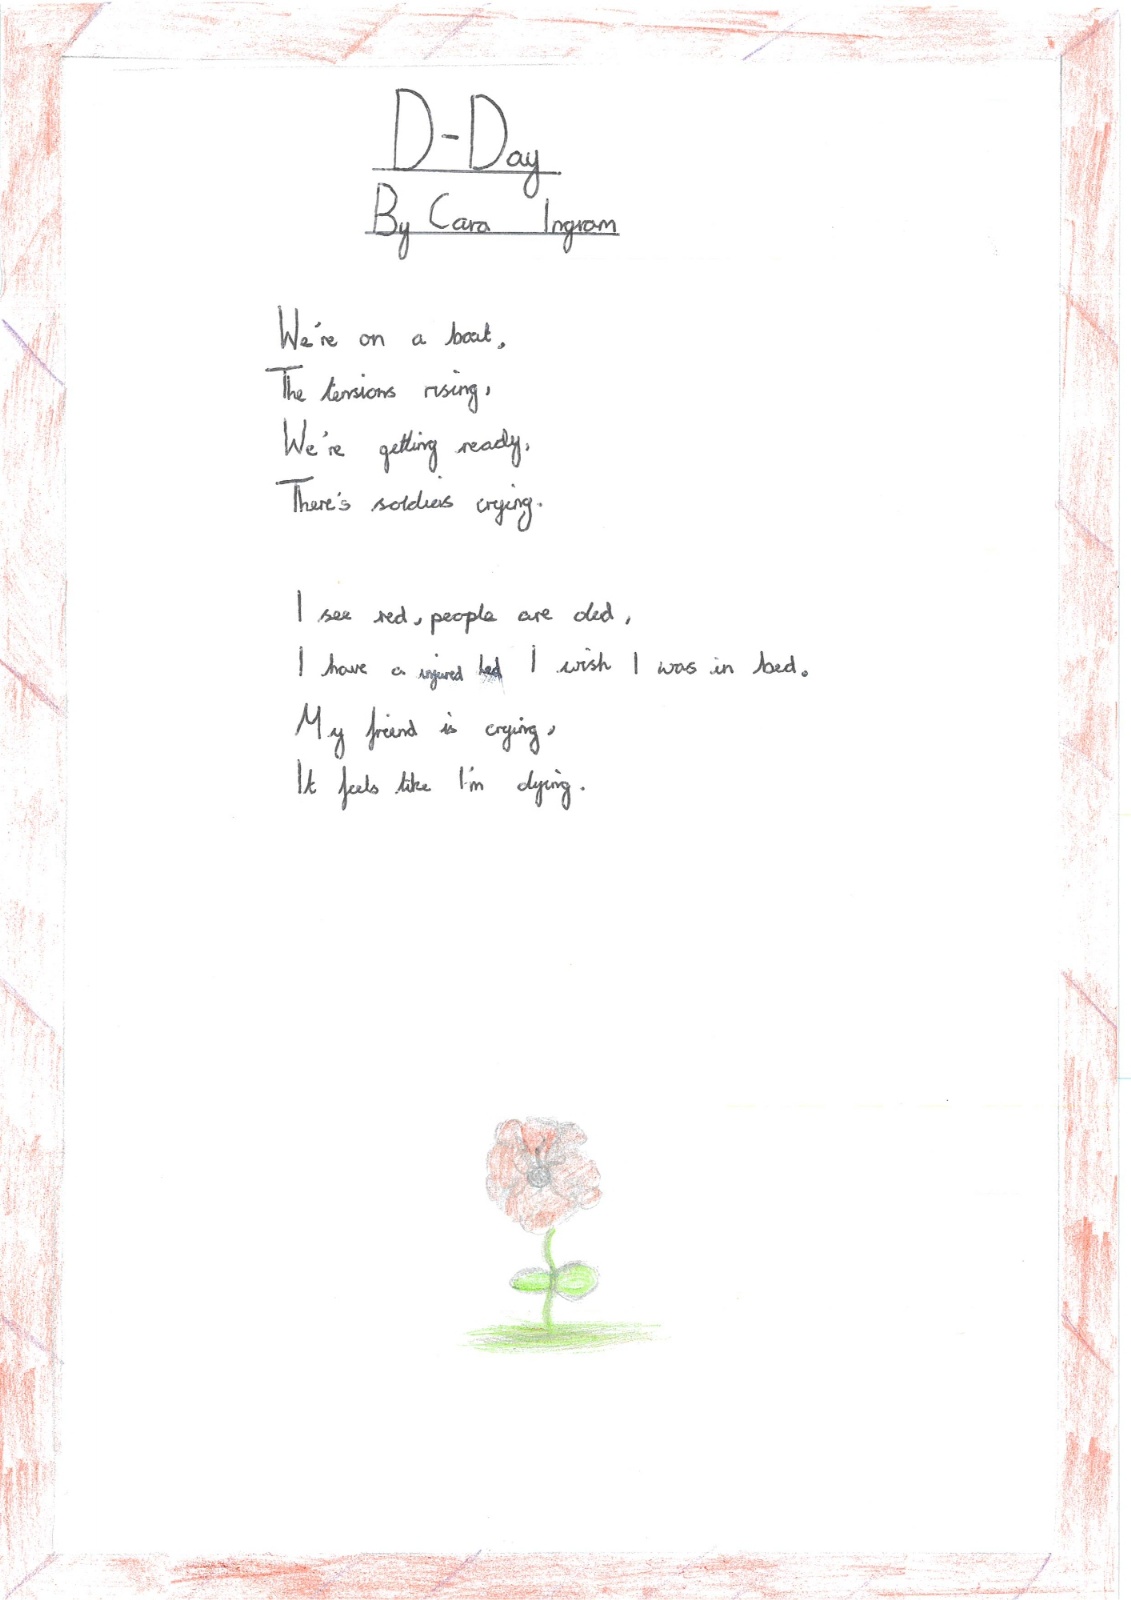 D-Day
By Cara Ingram
We're on a boat,
The tensions rising,
We're getting ready,
There's soldiers crying.
I see red, people are ded,
I have a injured hed I wish I was in bed.
My friend is crying,
It feels like I'm dying.